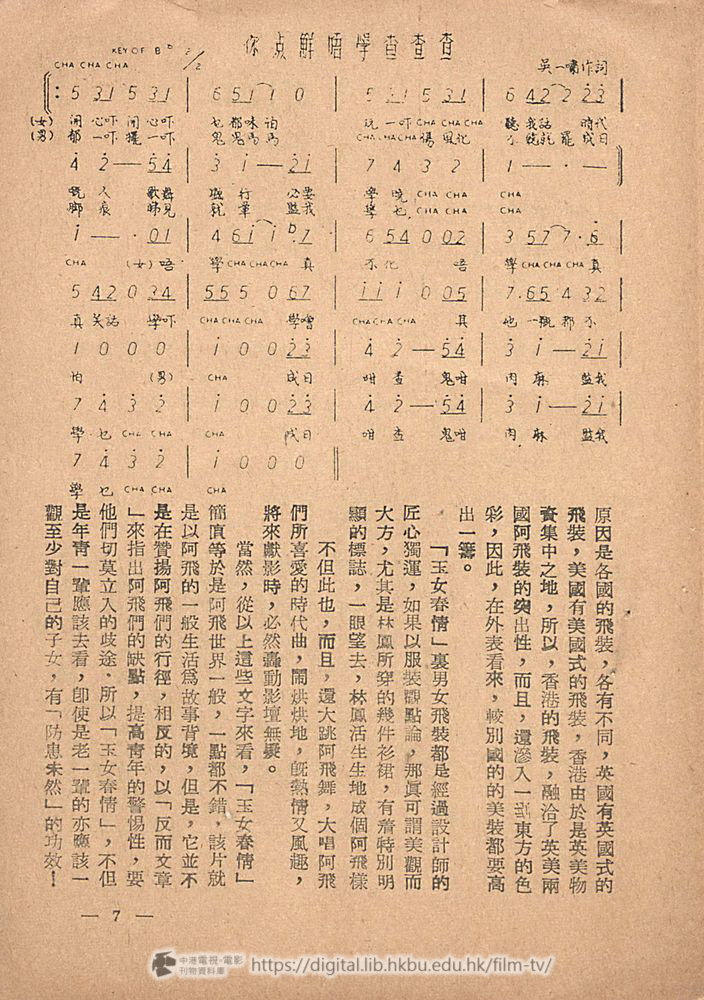 你点解唔學查查查
KEY OF B♭ 2/2
吳一嘯作詞
CHA CHA CHA
5 31 5 31 | 6 51 1 0 | 5 31 5 31 | 6 42 2 23
(女) 開 心吓 開 心吓 玩 一吓 CHA CHA CHA 聽 我話 時代
(男) 郁 一吓 擺 一吓 鬼 鬼馬馬 CHA CHA CHA 傷 風化
4 2 — 54 | 3 1 — 21 | 7 4 3 2 | 1 — · ·
歌舞 必要 學 CHA CHA CHA
睇見 監我 學 乜 CHA CHA CHA
1 — · 01 | 4 61 1 · 7 | 6 54 0 02 | 3 57 7 · 6
CHA (女) 唔 學 CHA CHA CHA 真 不化 唔 學 CHA CHA CHA 真
5 42 0 34 | 555 5 0 67 | 111 1 0 05 | 7 · 65 4 32
真 笑話 學吓 CHA CHA CHA 學嚕 CHA CHA CHA 其 他 一概 都 不
1 0 0 0 | 1 0 0 23 | 4 2 — 54 | 3 1 — 21
怕 (男) CHA 成日 咁 查 鬼咁 肉 麻 監我
7 4 3 2 | 1 0 0 23 | 4 2 — 54 | 3 1 — 21
學 乜 CHA CHA CHA 成日 咁 查 鬼咁 肉 麻 監我
7 4 3 2 | 1 0 0 0
學 乜 CHA CHA CHA
原因是各國的飛裝,各有不同,英國有英國式的
飛裝,美國有美國式的飛裝,香港由於是英美物
資集中之地,所以,香港的飛裝,融洽了英美兩
國阿飛裝的突出性,而且,還滲入一部東方的色
彩,因此,在外表看來,較別國的的美裝都要高
出一籌。
「玉女春情」裏男女飛裝都是經過設計師的
匠心獨運,如果以服裝觀點論,那眞可謂美觀而
大方,尤其是林鳳所穿的幾件衫裙,有着特別明
顯的標誌,一眼望去,林鳳活生生地成個阿飛樣
不但此也,而且,還大跳阿飛舞,大唱阿飛
們所喜愛的時代曲,鬧烘烘地,旣熱情又風趣,
將來獻影時,必然轟動影壇無疑。
當然,從以上這些文字來看,「玉女春情」
簡直等於是阿飛世界一般,一點都不錯,該片就
是以阿飛的一般生活爲故事背境,但是,它並不
是在贊揚阿飛們的行徑,相反的,以「反而文章
」來指出阿飛們的缺點,提高靑年的警惕性,要
他們切莫立入的歧途。所以「玉女春情」,不但
是年靑一輩應該去看,卽使是老一輩的亦應該一
觀至少對自己的子女,有「防患未然」的功效!
— 7 —
中港電視・電影
刊物資料庫
https://digital.lib.hkbu.edu.hk/film-tv/